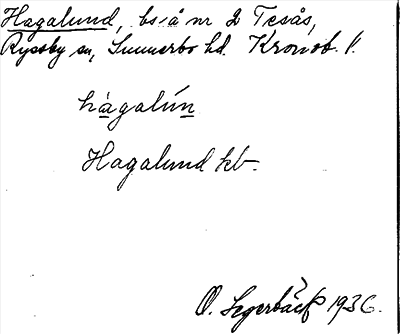 Hagalund, bs. å nr 2 Tesås,
Ryssby sn, Sunnerbo hd. Kronob. l.
hagalún
Hagalund kb.
O. Segerbäck 1936.